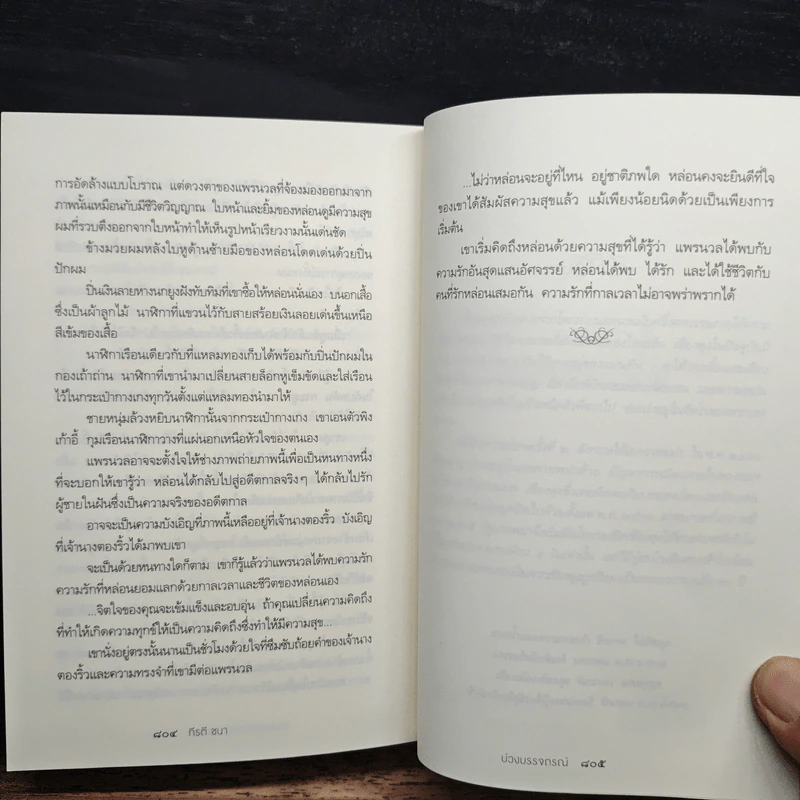 การอัดล้างแบบโบราณ แต่ดวงตาของแพรนวลที่จ้องมองออกมาจาก
ภาพนั้นเหมือนกับมีชีวิตวิญญาณ ใบหน้าและยิ้มของหล่อนดูมีความสุข
ผมที่รวบตึงออกจากใบหน้าทำให้เห็นรูปหน้าเรียวงามนั้นเด่นชัด
ข้างมวยผมหลังใบหูด้านซ้ายมือของหล่อนโดดเด่นด้วยปิ่น
ปักผม
ปิ่นเงินลายหางนกยูงฝังทับทิมที่เขาซื้อให้หล่อนนั่นเอง บนอกเสื้อ
ซึ่งเป็นผ้าลูกไม้ นาฬิกาที่แขวนไว้กับสายสร้อยเงินลอยเด่นขึ้นเหนือ
สีเข้มของเสื้อ
นาฬิกาเรือนเดียวกับที่แหลมทองเก็บได้พร้อมกับปิ่นปักผมใน
กองเถ้าถ่าน นาฬิกาที่เขานำมาเปลี่ยนสายล็อกหูเข็มขัดและใส่เรือน
ไว้ในกระเป๋ากางเกงทุกวันตั้งแต่แหลมทองนำมาให้
ชายหนุ่มล้วงหยิบนาฬิกานั้นจากกระเป๋ากางเกง เขาเอนตัวพิง
เก้าอี้ กุมเรือนนาฬิกาวางที่แผ่นอกเหนือหัวใจของตนเอง
แพรนวลอาจจะตั้งใจให้ช่างภาพถ่ายภาพนี้เพื่อเป็นหนทางหนึ่ง
ที่จะบอกให้เขารู้ว่า หล่อนได้กลับไปสู่อดีตกาลจริงๆ ได้กลับไปรัก
ผู้ชายในฝันซึ่งเป็นความจริงของอดีตกาล
อาจจะเป็นความบังเอิญที่ภาพนี้เหลืออยู่ที่เจ้านางตองริ้ว บังเอิญ
ที่เจ้านางตองริ้วได้มาพบเขา
จะเป็นด้วยหนทางใดก็ตาม เขาก็รู้แล้วว่าแพรนวลได้พบความรัก
ความรักที่หล่อนยอมแลกด้วยกาลเวลาและชีวิตของหล่อนเอง
...จิตใจของคุณจะเข้มแข็งและอบอุ่น ถ้าคุณเปลี่ยนความคิดถึง
ที่ทำให้เกิดความทุกข์ให้เป็นความคิดถึงซึ่งทำให้มีความสุข...
เขานั่งอยู่ตรงนั้นนานเป็นชั่วโมงด้วยใจที่ซึมซับถ้อยคำของเจ้านาง
ตองริ้วและความทรงจำที่เขามีต่อแพรนวล
๘๐๔ กีรตี ชนา
...ไม่ว่าหล่อนจะอยู่ที่ไหน อยู่ชาติภพใด หล่อนคงจะยินดีที่ใจ
ของเขาได้สัมผัสความสุขแล้ว แม้เพียงน้อยนิดด้วยเป็นเพียงการ
เริ่มต้น
เขาเริ่มคิดถึงหล่อนด้วยความสุขที่ได้รู้ว่า แพรนวลได้พบกับ
ความรักอันสุดแสนอัศจรรย์ หล่อนได้พบ ได้รัก และได้ใช้ชีวิตกับ
คนที่รักหล่อนเสมอกัน ความรักที่กาลเวลาไม่อาจพร่าพรากได้
บ่วงบรรจถรณ์ ๘๐๕